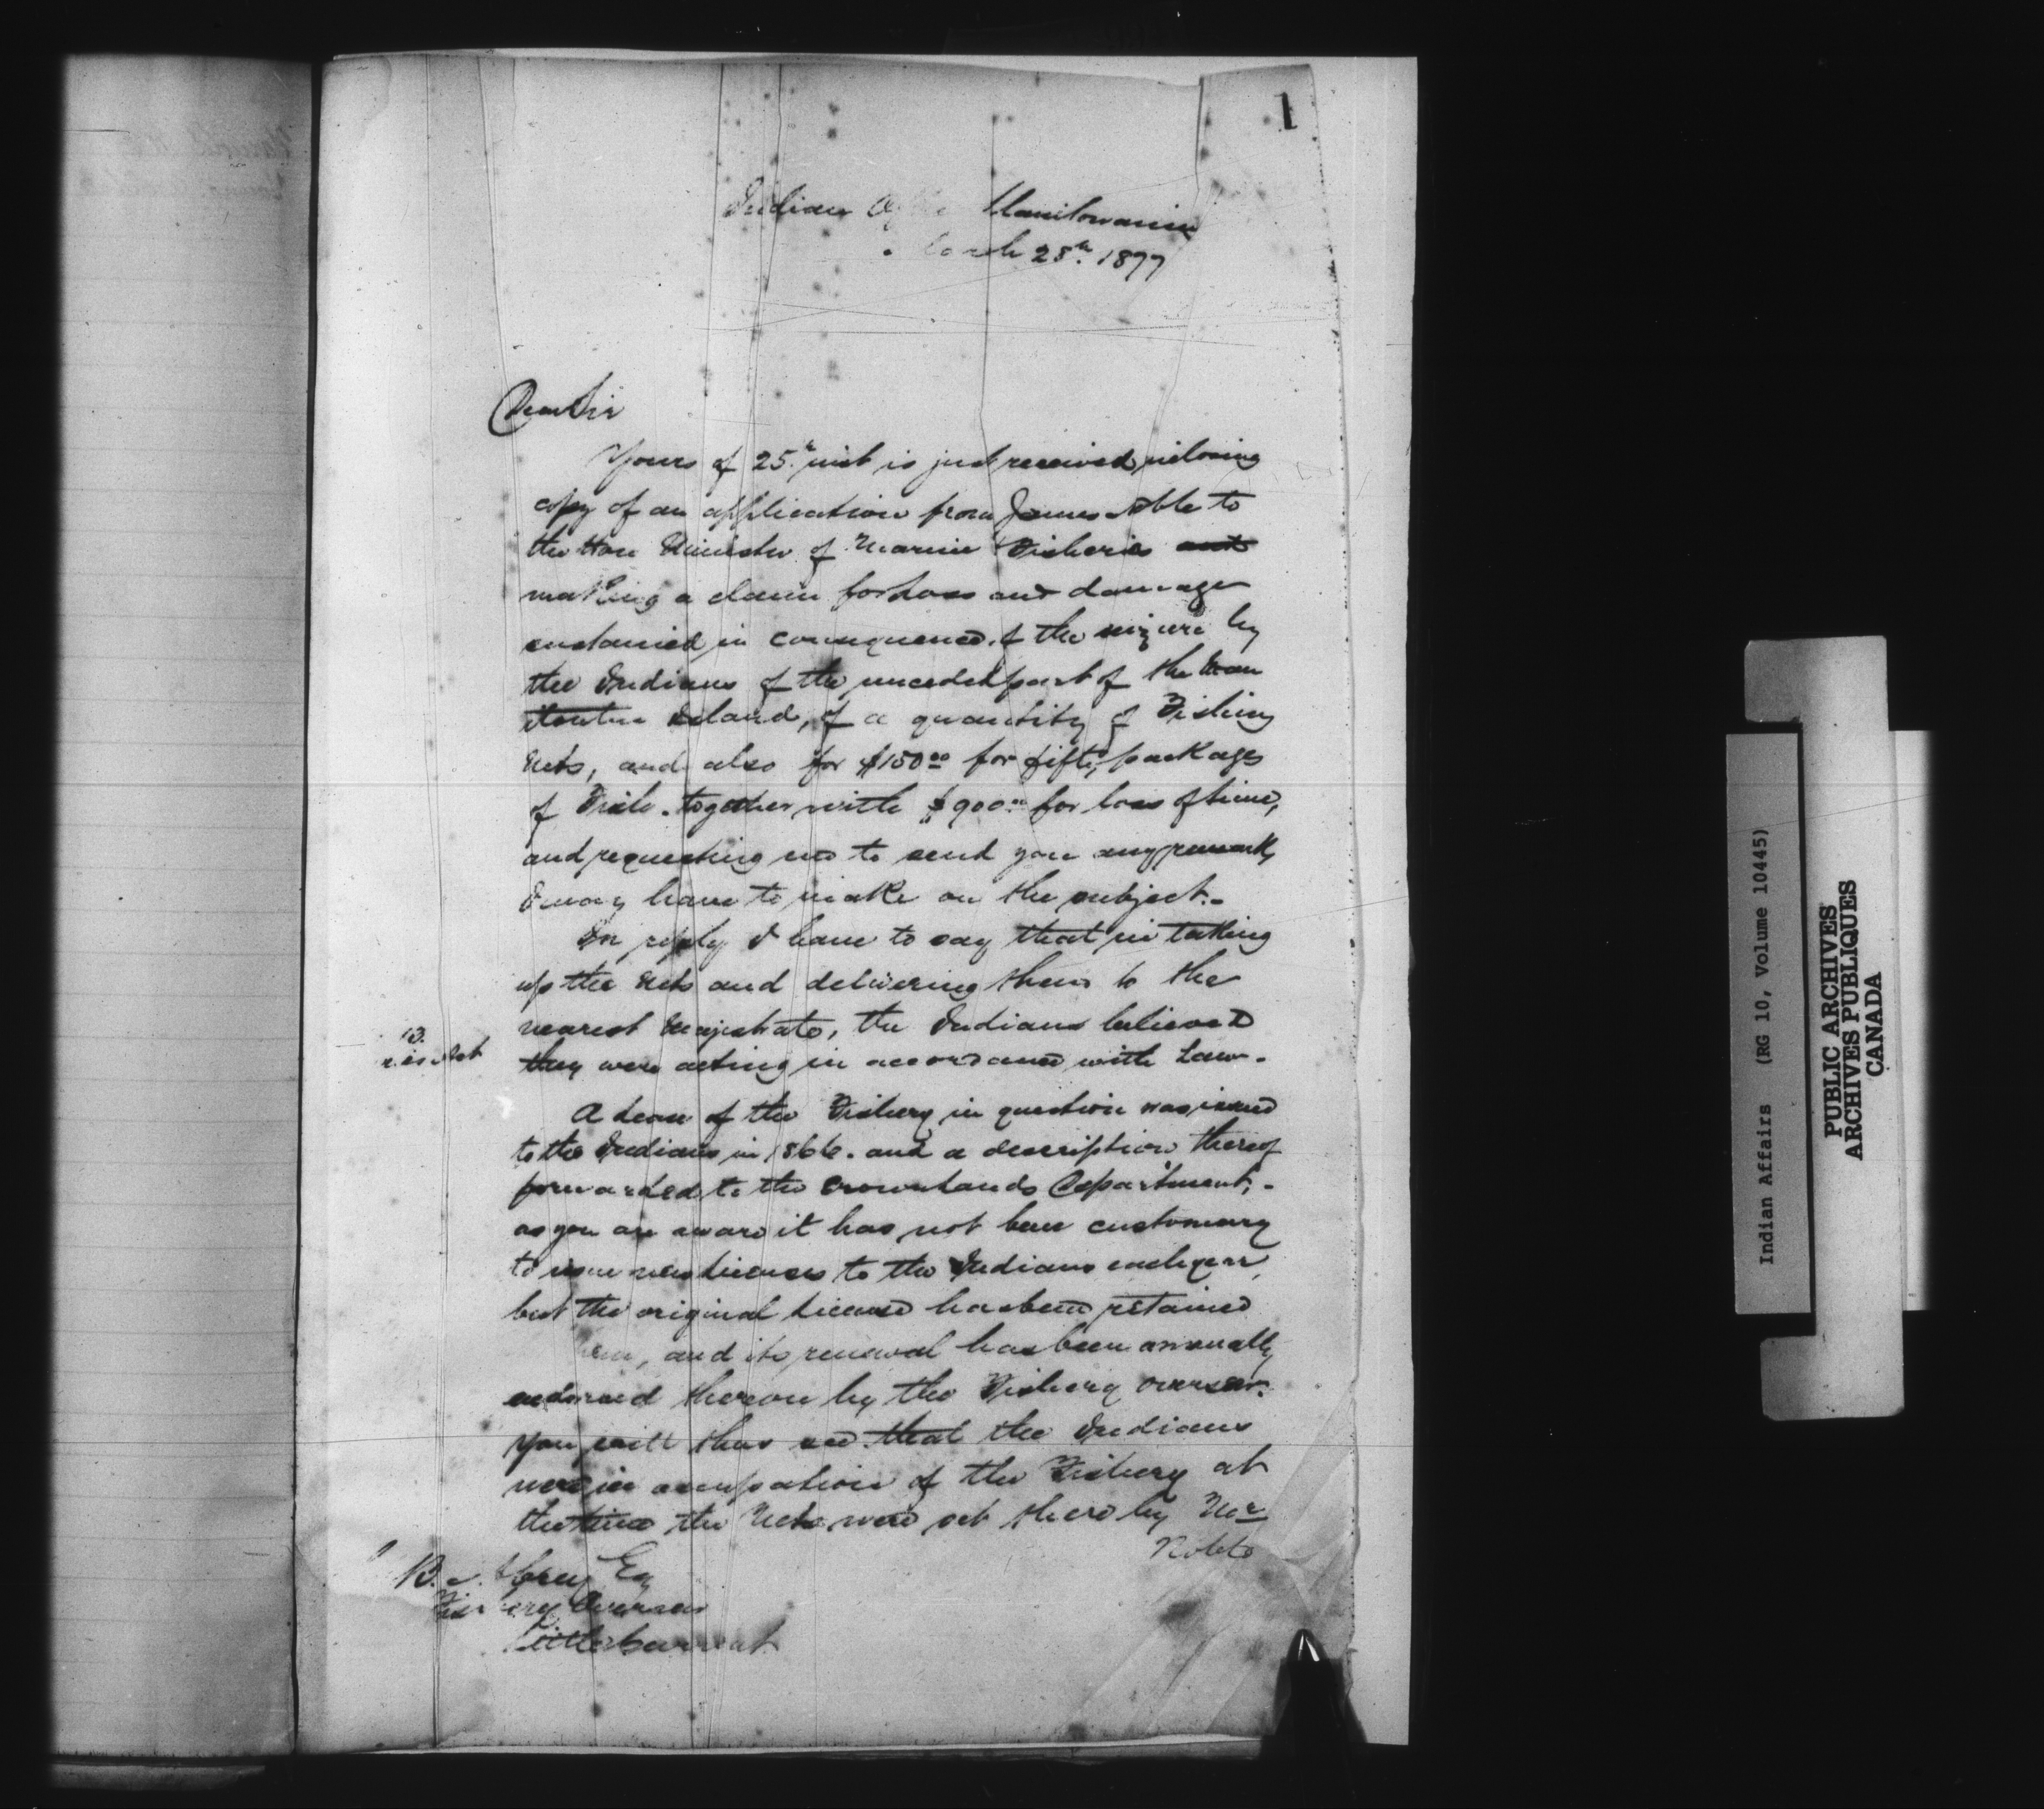 1
Indian Manitowanin
March 28th. 1877
Dear Sir
Yours of 25th. inst is just received, inclosing
copy of an application from James Noble to
the Hon Minister of Marine Fisheries and
making a claim for Loss and damage
sustained in consequence of the seizure by
the Indians of the unceded part of the Man
itoulin Island, of a quantity of Fishing
Nets, and also for $150.00 for fifty packages
of Fish. together with $900.00 for loss of time,
and requesting me to send you any remarks
I may have to make on the subject.-
In reply I have to say that in taking
up the Nets and delivering them to the
nearest Majestrate, the Indians believed
they were acting in accordance with Law.
13.
Act
A Lease of the Fishery in question was issued
to the Indians in 1866. and a description thereof
forwarded to the Crown Lands Department,-
as you are aware it has not been customary
to issue new Licenses to the Indians each year,
but the original License has been retained
and its renewal has been annually
endorsed thereon by the Fishery overseer.
You will thus see that the Indians
were in occupation of the Fishery at
the time the Nets were set there by Mr
Noble
B. Esq
Fishery Overseer
Little Current
Indian Affairs (RG 10, Volume 10445)
PUBLIC ARCHIVES
ARCHIVES PUBLIQUES
CANADA